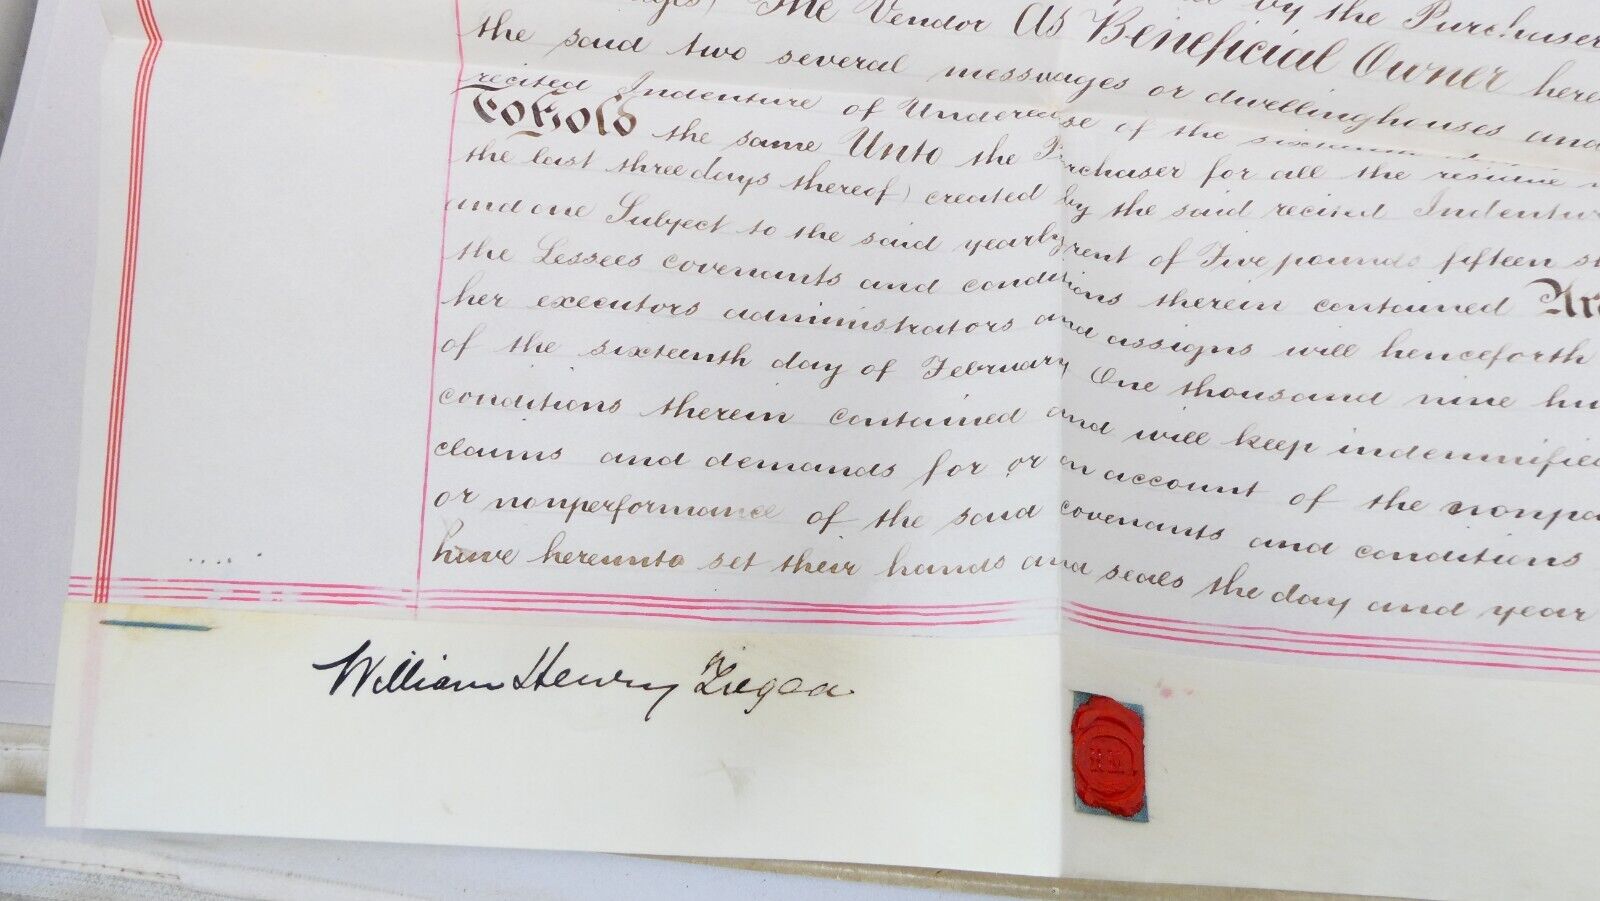 The Vendor As Beneficial Owner here
by the Purchaser
the said two several messuages or dwellinghouses and
recited Indenture of Underlease of the sixteenth
To Hold the same Unto the Purchaser for all the residue
the last three days thereof) created by the said recited Indenture
and one Subject to the said yearly rent of Five pounds fifteen
the Lessees covenants and conditions therein contained And
her executors administrators and assigns will henceforth
of the sixteenth day of February One thousand nine hu
conditions therein contained and will keep indemnified
claims and demands for or on account of the nonpa
or nonperformance of the said covenants and conditions
have hereunto set their hands and seals the day and year
William Henry